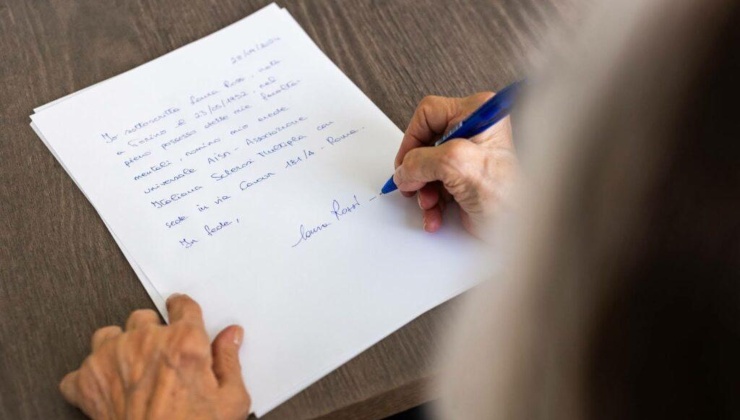 Io sottoscritta Laura Rossi, nata
a Torino il 23/05/1952, nel
pieno possesso delle mie facoltà
mentali, nomino mio erede
universale Aism - Associazione
Italiana Sclerosi Multipla con
sede in via Cavour 181/A - Roma.
In fede,
Laura Rossi